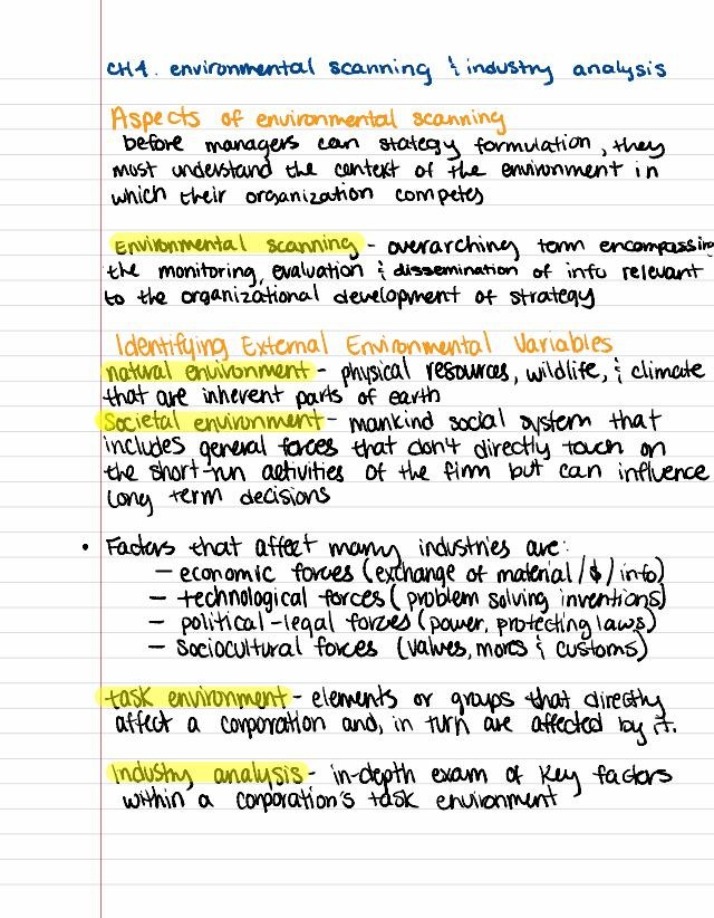 CH4. environmental scanning & industry analysis
Aspects of environmental scanning
before managers can stategy formulation, they
must understand the context of the environment in
which their organization competes
Environmental scanning - overarching term encompassing
the monitoring, evaluation & dissemination of info relevant
to the organizational development of strategy
Identifying External Environmental Variables
natural environment - physical resources, wildlife, & climate
that are inherent parts of earth
Societal environment - mankind social system that
includes general forces that don't directly touch on
the short-run activities of the firm but can influence
long term decisions
• Factors that affect many industries are:
— economic forces (exchange of material/$/info)
— technological forces (problem solving inventions)
— political-legal forces (power, protecting laws)
— sociocultural forces (values, mores & customs)
task environment - elements or groups that directly
affect a corporation and, in turn are affected by it.
Industry analysis - in-depth exam of key factors
within a corporation's task environment